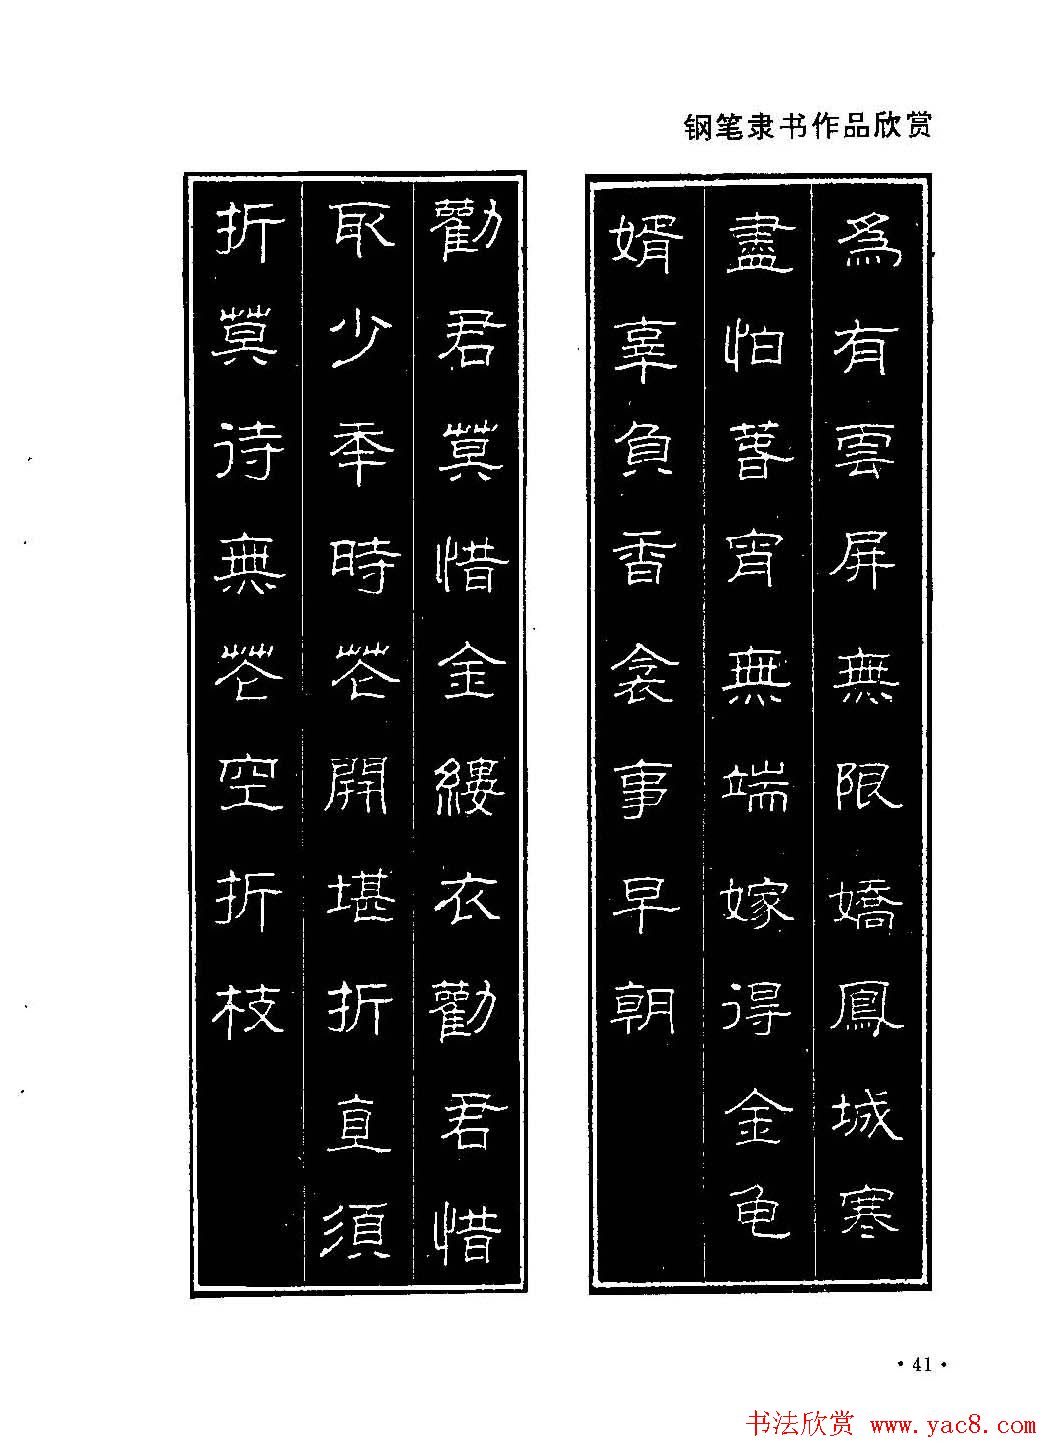 钢笔隶书作品欣赏
為有雲屏無限嬌鳳城寒
盡怕萅宵無端嫁得金龟
婿辜負香衾事早朝
勸君莫惜金縷衣勸君惜
取少年時花開堪折直須
折莫待無花空折枝
·41·
书法欣赏 www.yac8.com